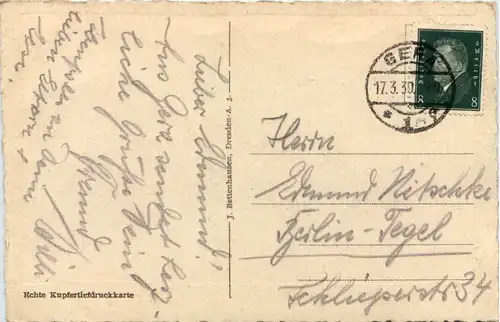 Lieber Edmund!
Aus Gera sendet herz-
liche Grüße Dein
Freund Willi
lieben Eltern +
GERA
17.3.30.
* 1 *
8 8
Herrn
Edmund Nitschke
Berlin-Tegel
Schlieperstr 34
J. Bettenhausen, Dresden-A. 3.
Echte Kupfertiefdruckkarte